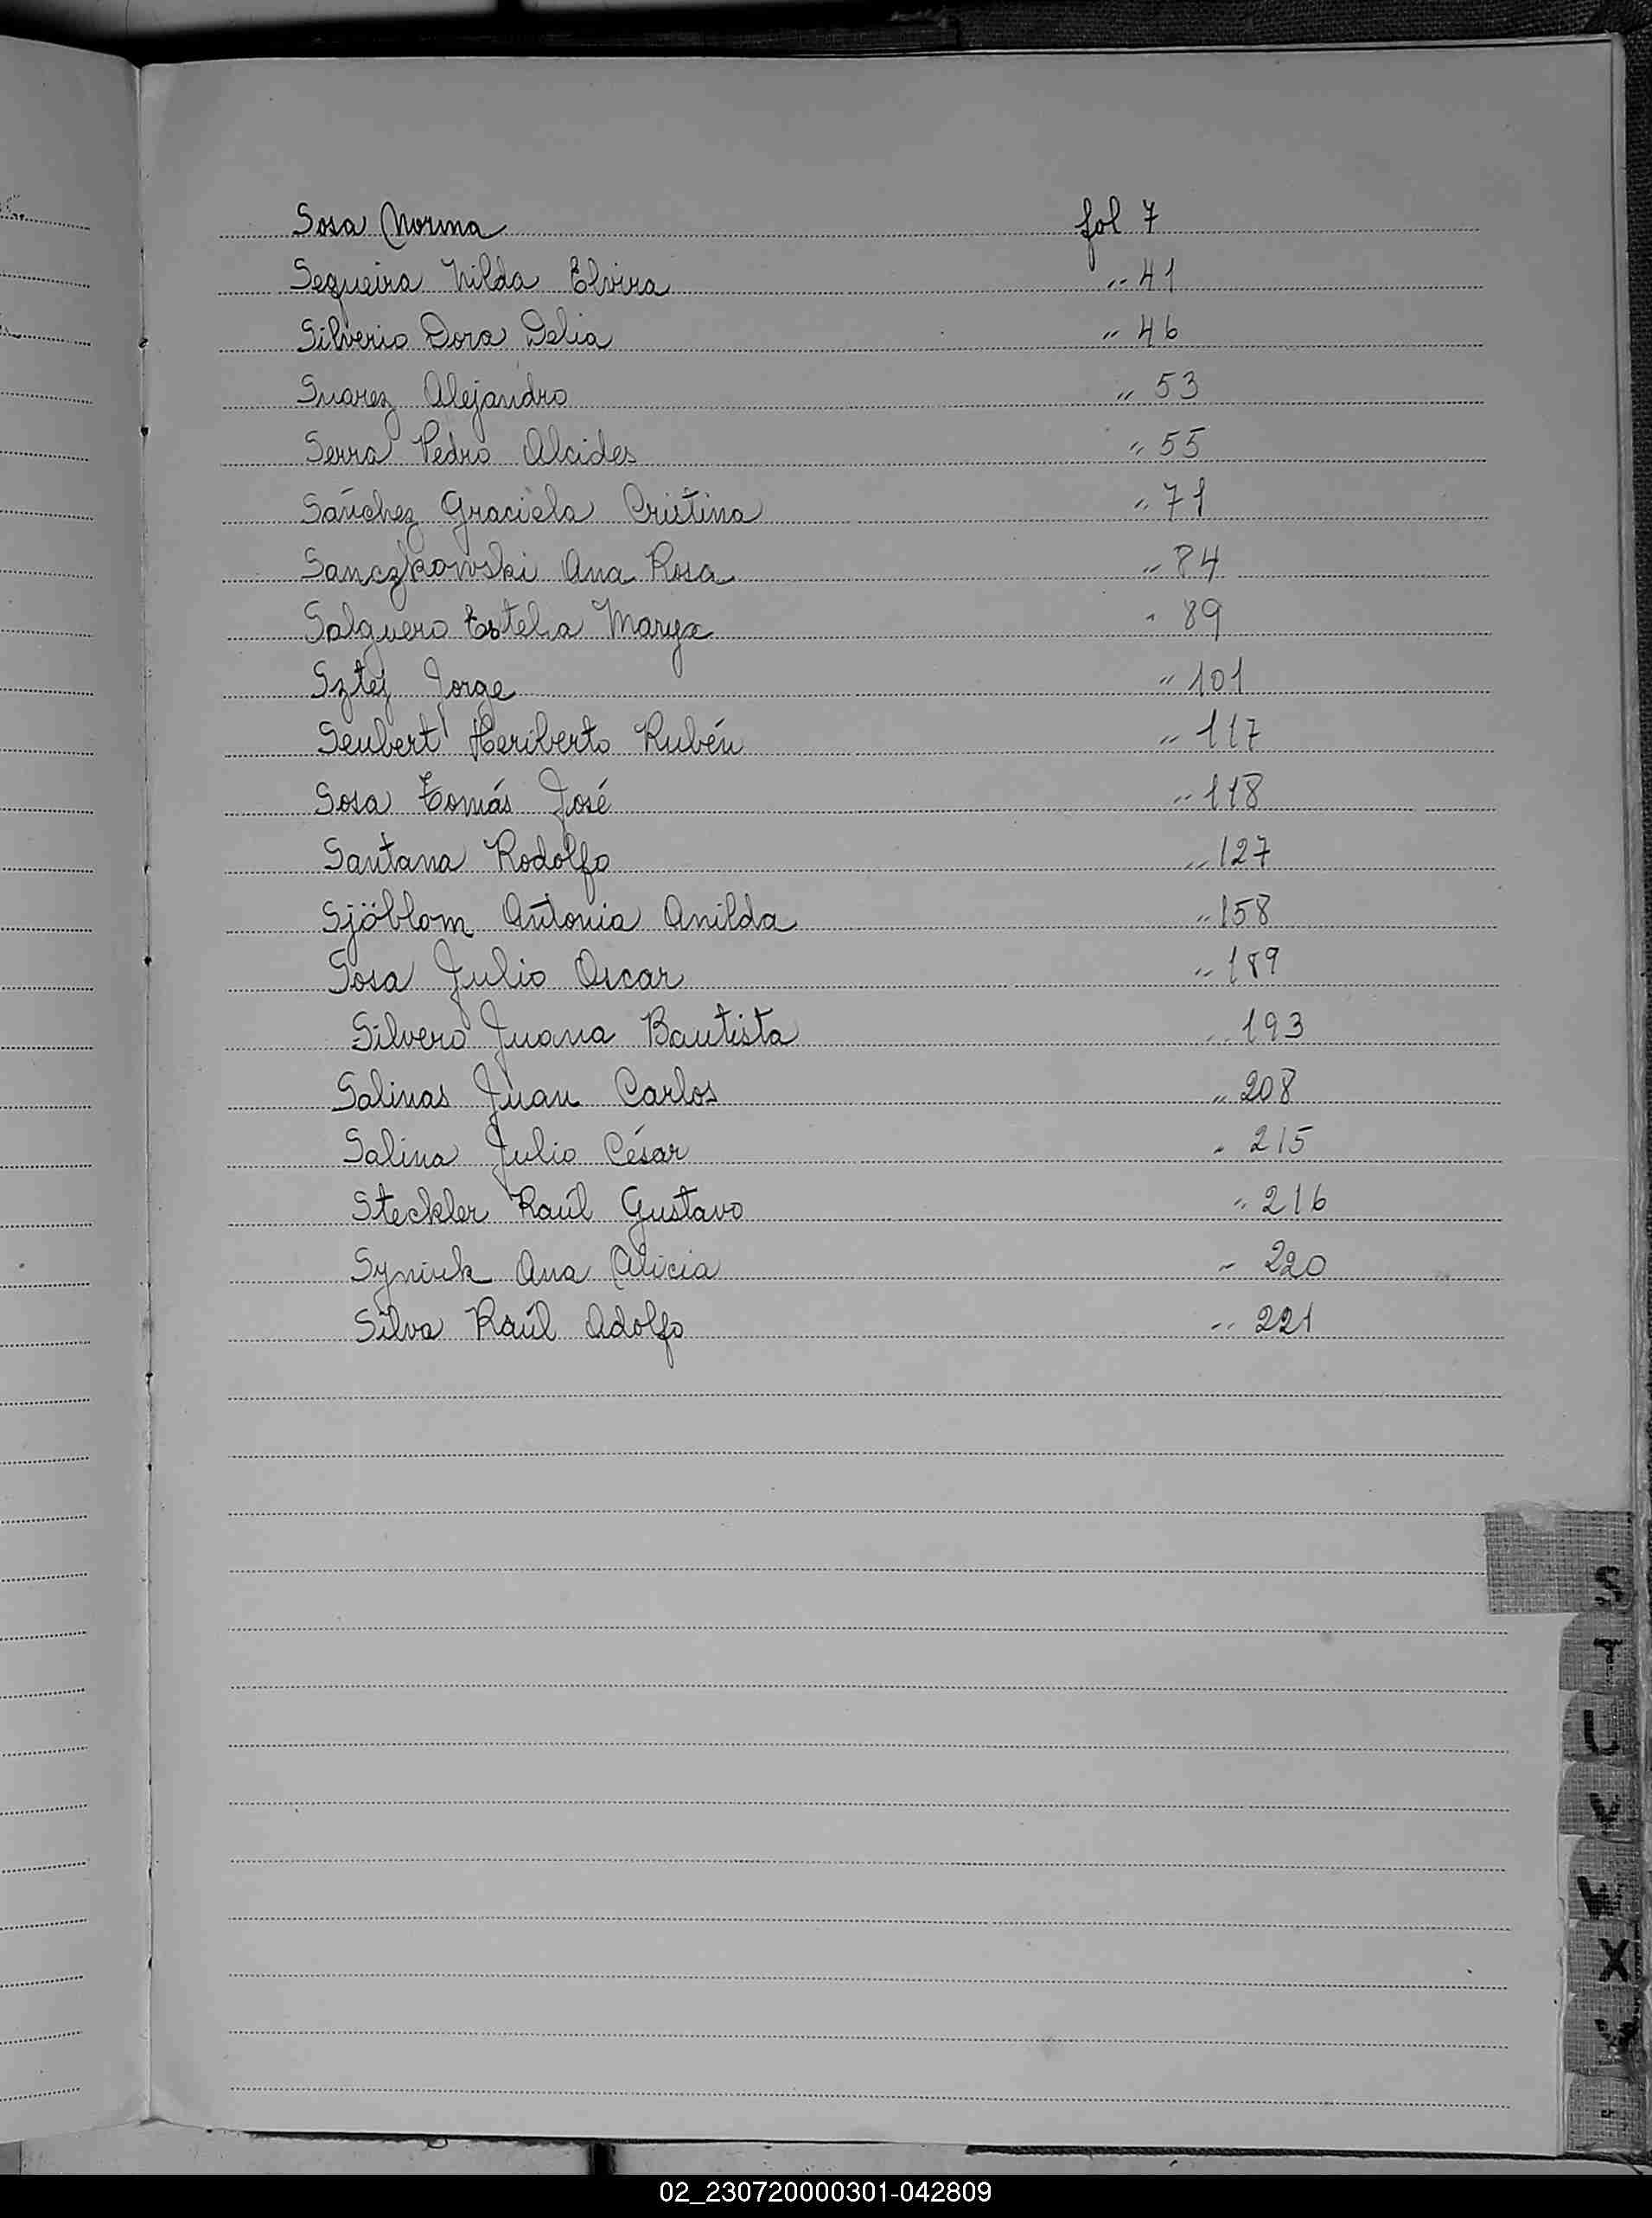 Sosa Norma fol 7
Sequeira Nilda Elvira " 41
Silverio Dora Delia " 46
Suarez Alejandro " 53
Serra Pedro Alcides " 55
Sánchez Graciela Cristina " 71
Sanczkowski Ana Rosa " 84
Salguero Estela Marys " 89
Sztej Jorge " 101
Seubert Heriberto Rubén " 117
Sosa Tomás José " 118
Santana Rodolfo " 127
Sjöblom Antonia Anilda " 158
Sosa Julio Oscar " 189
Silvero Juana Bautista " 193
Salinas Juan Carlos " 208
Salina Julio César " 215
Steckler Raúl Gustavo " 216
Syniuk Ana Alicia " 220
Silva Raúl Adolfo " 221
S
T
X
02_230720000301-042809